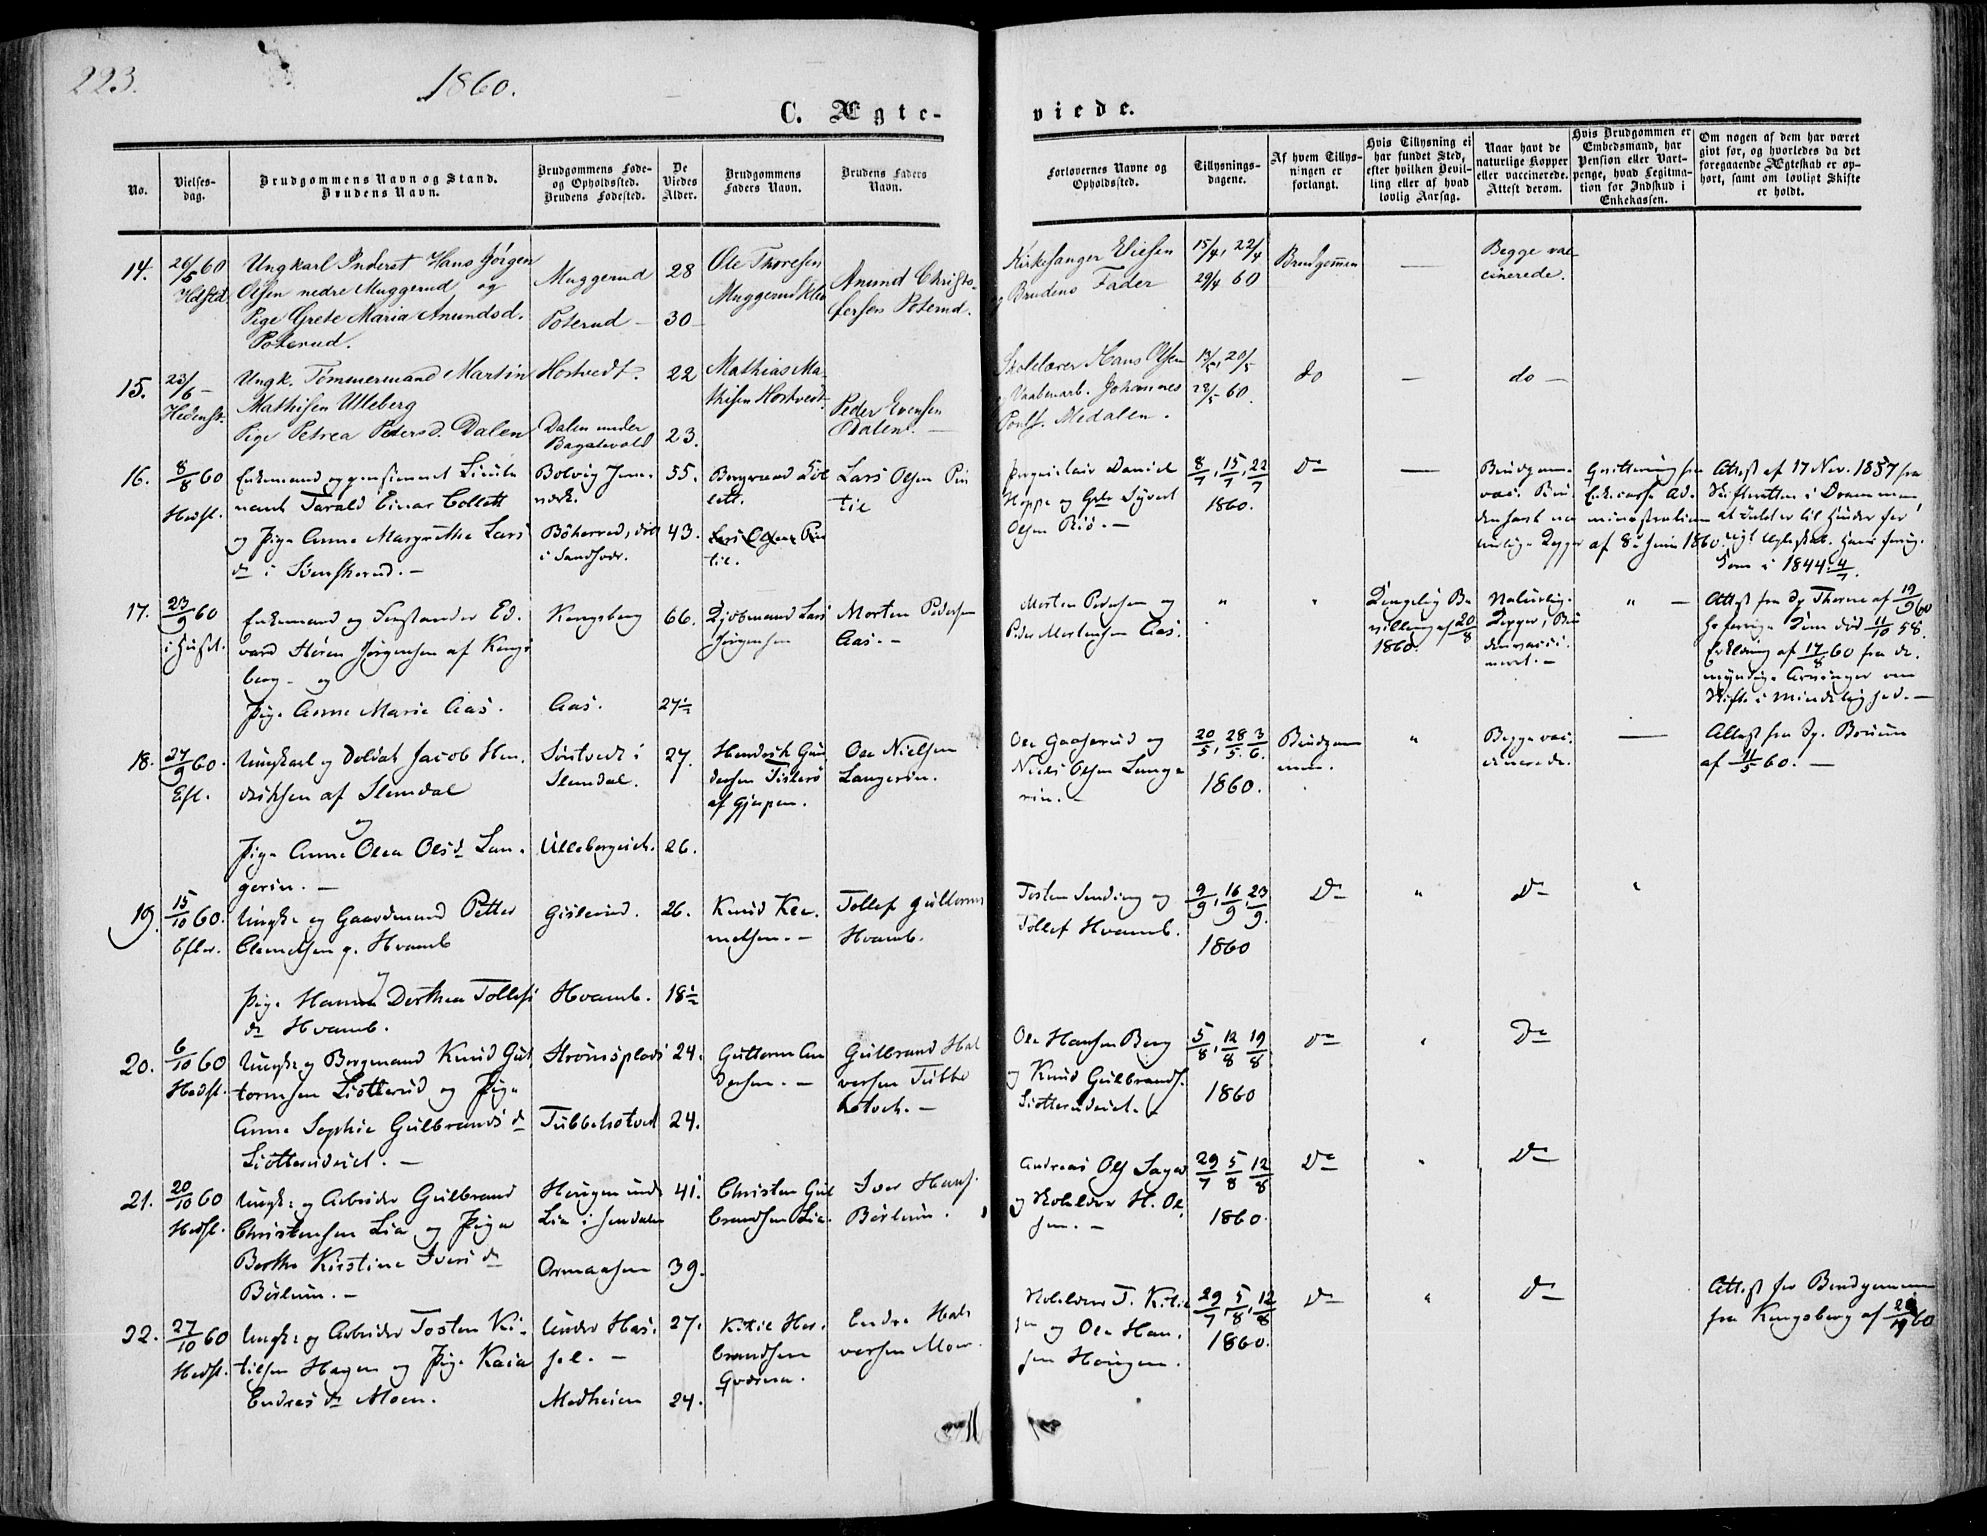 223.
1860.
C. Ægte-
viede.
No.
Vielses-
dag.
Brudgommens Navn og Stand.
Brudens Navn.
Brudgommens Føde-
og Opholdssted.
Brudens Fødested.
De
Viedes
Alder.
Brudgommens
Faders Navn.
Brudens Faders
Navn.
Forlovernes Navne og
Opholdssted.
Tillysnings-
dagene.
Af hvem Tillys-
ningen er
forlangt.
Hvis Tillysning ei
har fundet Sted,
efter hvilken Bevil-
ling eller af hvad
lovlig Aarsag.
Naar havt de
naturlige Kopper
eller vaccinerede.
Attest derom.
Hvis Brudgommen er
Embedsmand, har
Pension eller Vart-
penge, hvad Legitma-
tion for Indskud i
Enkekassen.
Om nogen af dem har været
givt før, og hvorledes da det
foregaaende Ægteskab er op-
hørt, samt om lovligt Skifte
er holdt.
14.
26/5 60
Hdsted
Ungkarl Inderst Hans Jørgen
Olsen nedre Muggerud og
Pige Grete Maria Anundsd.
Poterud.
Muggerud
Poterud
28
30
Ole Thoresen
Muggerud
Anund Christo-
fersen Poterud.
Kirkesanger Eliesen
og Brudens Fader
15/4, 22/4
29/4 60
Brudgommen
—
Begge vac-
cinerede.
15.
23/6 —
Hedenst.
Ungk. Tømmermand Martin
Mathisen Ulleberg
Pige Petrea Pedersd. Dalen
Hostvedt.
Dalen under
Bagatevold
22
23.
Mathias Ma-
thisen Hostvedt
Peder Evensen
Dalen. —
Skolelærer Hans Olsen
og Vaabenarb. Johannes
Pouls. Medalen.
13/5, 20/5
28/5 60.
do
—
do —
16.
8/8 60
Hedst.
Enkemand og pensioneret Lieute-
nant Tarald Einar Collett
og Pige Anne Margrethe Lars
d. i Svenskerud. —
Bolvig Jern-
værk.
Bökerud,
i Sandsvær.
55.
43.
Bergraad Col-
lett.
Lars Olsen Pin
til.
Lars Olsen Pin
til
Daniel
Hoppe og Grbr Syvert
Olsen Riö. —
8/7, 15/7, 22/7
1860.
Do
—
Brudgom.
vac. Bru-
den havt na-
turlige Kopper
Qvittering fra
Enkecasse Ad-
ministrationen
af 8de Juni 1860
Attest af 17 Nov. 1857 fra
Skifteretten i Drammen
at Intet er til Hinder for
nyt Ægteskab. Hans forrige
i 1844 4/7.
17.
23/9 60
i Huset.
Enkemand og Ed-
vard Sören Jörgensen af Kongs-
berg — og
Pige Anne Marie Aas.
Kongsberg
Aas.
66.
27½
Kjöbmand Lars
Jörgensen
Morten Pedersen
Aas. —
Morten Pedersen og
Peder Mortensen Aas.
"
"
Kongelig Be-
villing af 20/8
1860.
Naturlige
Kopper, Bru-
den vacci-
neret. —
" —
Attest fra Sp. Thorne af 19/9 60
död 11/10 58.
Erklæring af 17/8 60 fra de
myndige Arvinger om
Skifte i Mindelighed. —
18.
27/9 60.
Efl.
Ungkarl og Soldat Jacob Hen-
driksen af Slemdal
og
Pige Anne Olea Olsd Lan-
gerin. —
Sörtvedt i
Slemdal.
Ullebergeiet.
27.
26.
Hendrik Gun-
dersen Tisterö
af Gjerpen.
Ole Nielsen
Langerin.
Ole Gaaserud og
Niels Olsen Lange-
rin. —
20/5, 28/5, 3/6.
1860.
Brudgom-
men.
"
Begge vac-
cinerede.
—
Attest fra Sp. Bruun
af 11/5 60. —
19.
15/10 60.
Efter.
Ungk. og Gaardmand Petter
Clemetsen g. Hvamb
og
Pige Hanna Dorthea Tollefs
d. Hvamb.
Gislerud.
Hvamb.
26.
18½
Knud Kle-
metsen. —
Tollef Gulbransen
Hvamb.
Tosten Sending og
Tollef Hvamb.
9/9, 16/9, 23/9.
1860
Do
"
Do
"
20.
6/10 60
Hedst.
Ungk. og Bergmand Knud Gut-
tormsen Slotterud og Pige
Anne Sophie Gulbrands d.
Slotterudeiet. —
Strömsplads
Tubbehotved
24.
24.
Guttorm An-
dersen. —
Gulbrand Hal-
versen Tubbe
hotvet. —
Ole Hansen Berg
og Knud Gulbrands.
Slotterudeiet. —
5/8, 12/8, 19/8.
1860
Do
"
Do
21.
20/10 60
Hedst.
Ungk. og Arbeider Gulbrand
Christensen Lia og Pige
Berthe Kirstine Ivers d.
Börlum. —
Haugen under
Lia i Jondalen
Ormaasen
41.
39.
Christen Gul-
brandsen Lia.
Iver Hans.
Börlum.
Andreas Ols. Sager
og Skolelærer H. Ol-
sen. —
29/7, 5/8, 12/8
1860.
Do
"
Do
22.
27/10 60
Hedst.
Ungk. og Arbeider Tosten Ki-
tilsen Hagen og Pige Kaia
Endres d. Moen.
Under Has-
sel. —
Medheien
27.
24.
Kitil Her-
brandsen
Endre Hal-
versen Moen.
Skolelærer T. Kitil-
sen og Ole Han-
sen Haugen.
29/7, 5/8, 12/8
1860.
Do
"
Do
Attest for Brudgommen
fra Kongsberg af 60